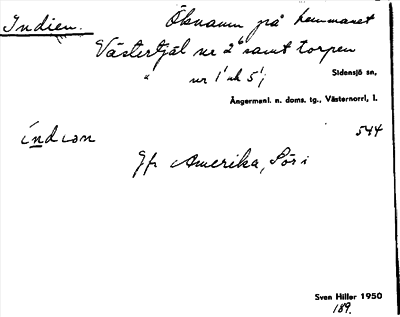 Indien. Öknamn på hemmanet
Västertjäl nr 2⁶ samt torpen
" nr 1¹ och 5¹;
Sidensjö sn,
Ångermanl. n. doms. tg., Västernorrl. l.
índıɔn 544
Jfr Amerika, Sör i
Sven Hiller 1950
189.